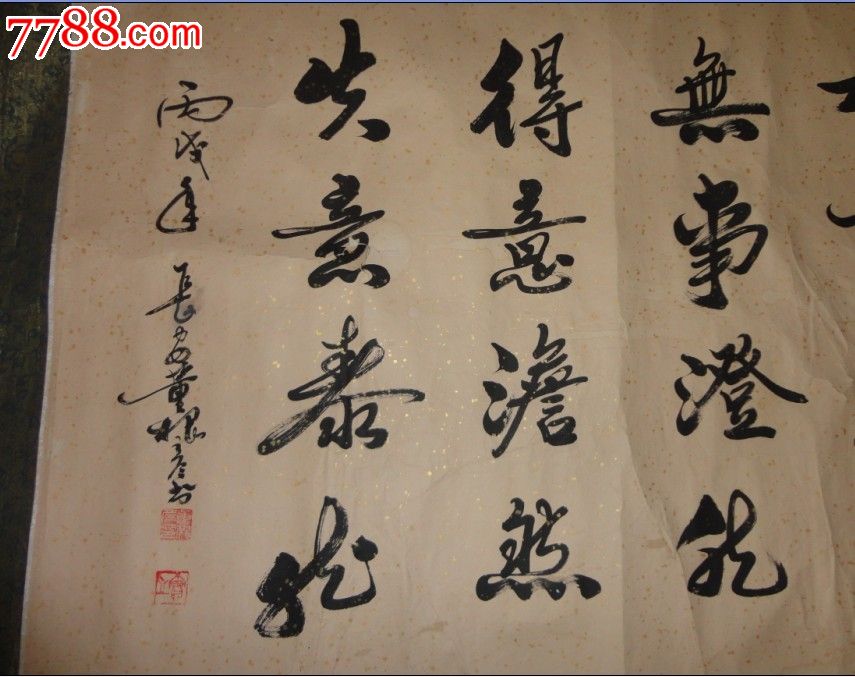 7788.com
無事澄然
得意澹然
失意泰然
丙戌年 長安黃根彥書